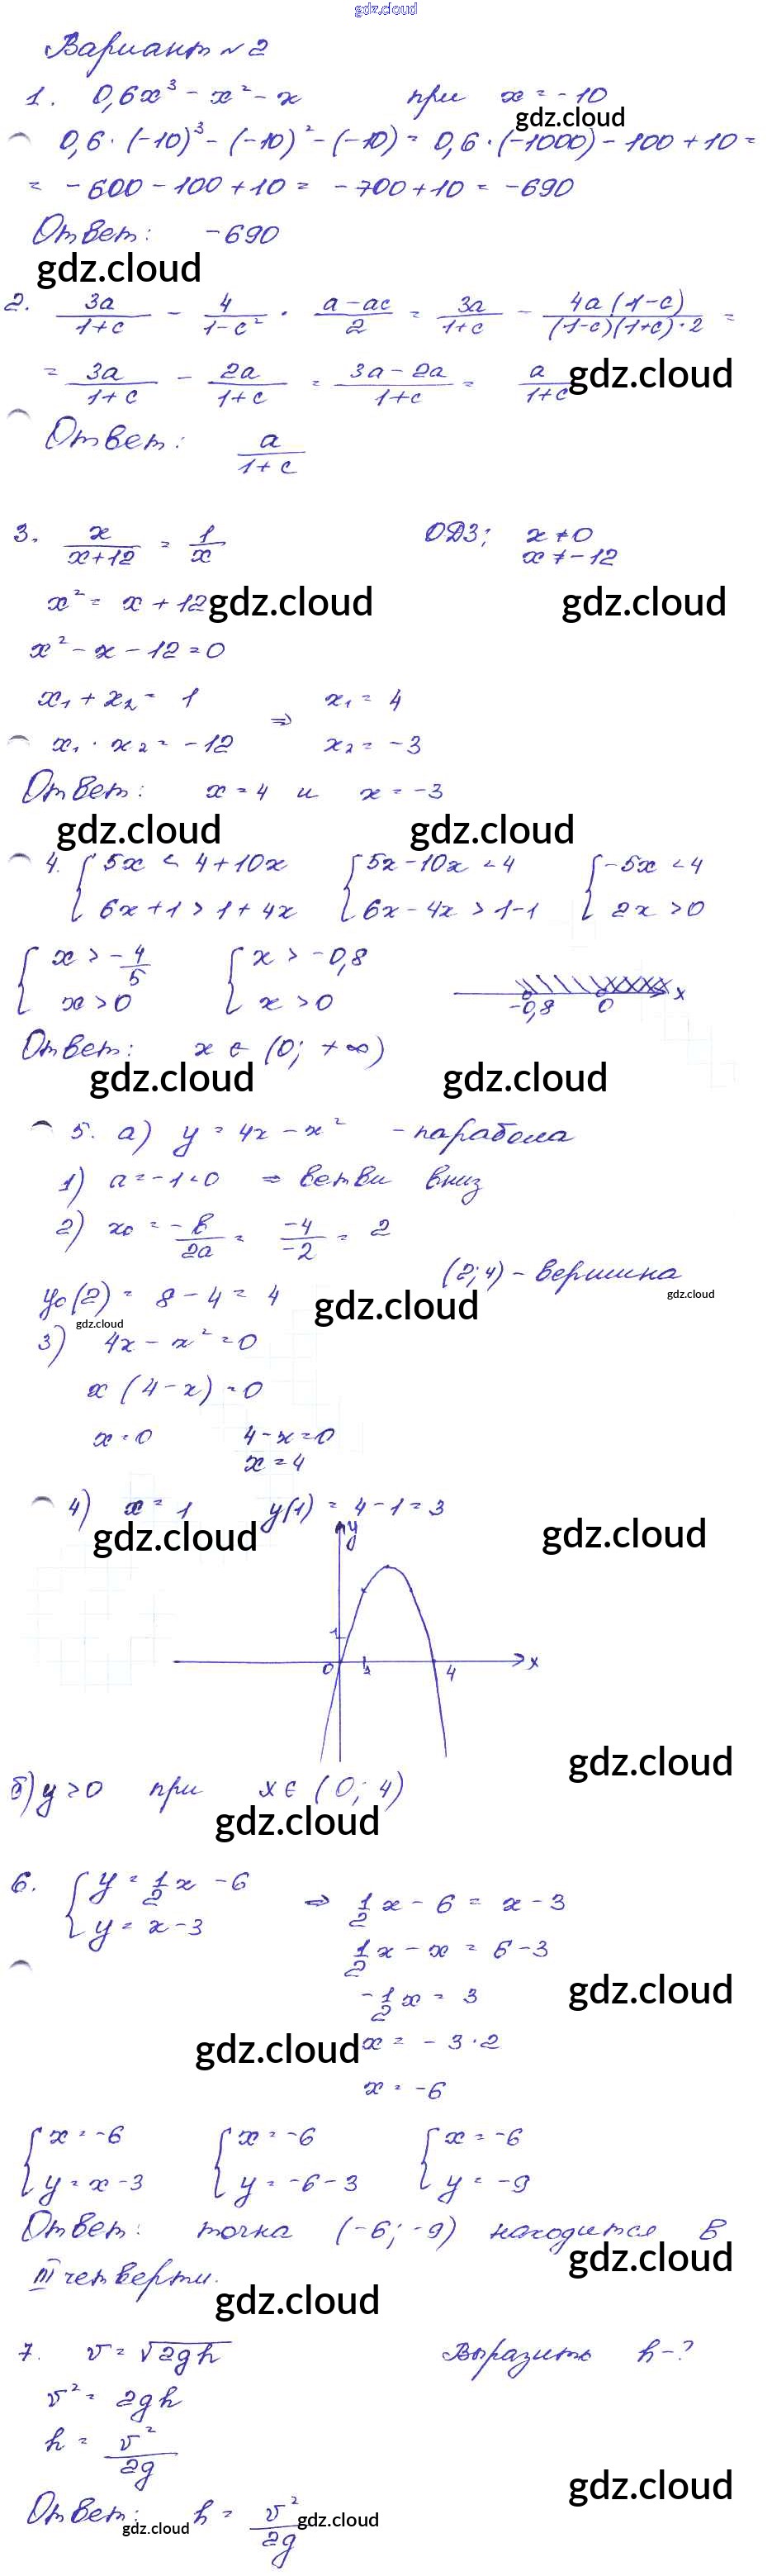 gdz.cloud
Вариант №2
1. 0,6x³ - x² - x при x = -10
gdz.cloud
0,6·(-10)³ - (-10)² - (-10) = 0,6·(-1000) - 100 + 10 =
= -600 - 100 + 10 = -700 + 10 = -690
Ответ: -690
gdz.cloud
2. 3a/(1+c) - 4/(1-c²) · (a-ac)/2 = 3a/(1+c) - 4a(1-c)/((1-c)(1+c)·2) =
= 3a/(1+c) - 2a/(1+c) = (3a-2a)/(1+c) = a/(1+c) gdz.cloud
Ответ: a/(1+c)
3. x/(x+12) = 1/x ОДЗ: x ≠ 0
x ≠ -12
x² = x + 12 gdz.cloud gdz.cloud
x² - x - 12 = 0
x₁ + x₂ = 1 ⇒ x₁ = 4
x₁ · x₂ = -12 x₂ = -3
Ответ: x = 4 и x = -3
gdz.cloud gdz.cloud
4. { 5x < 4 + 10x { 5x - 10x < 4 { -5x < 4
6x + 1 > 1 + 4x 6x - 4x > 1 - 1 2x > 0
{ x > -4/5 { x > -0,8
x > 0 x > 0 -0,8 0 x
Ответ: x ∈ (0; +∞)
gdz.cloud gdz.cloud
5. а) y = 4x - x² - парабола
1) a = -1 < 0 ⇒ ветви вниз
2) x₀ = -b/2a = -4/-2 = 2
(2; 4) - вершина
y₀(2) = 8 - 4 = 4 gdz.cloud gdz.cloud
gdz.cloud
3) 4x - x² = 0
x(4 - x) = 0
x = 0 4 - x = 0
x = 4
4) x = 1 y(1) = 4 - 1 = 3
gdz.cloud gdz.cloud
y
1
0 1 4 x
gdz.cloud
б) y > 0 при x ∈ (0; 4)
gdz.cloud
6. { y = 1/2 x - 6 ⇒ 1/2 x - 6 = x - 3
y = x - 3
1/2 x - x = 6 - 3
-1/2 x = 3 gdz.cloud
gdz.cloud x = -3·2
x = -6
{ x = -6 { x = -6 { x = -6
y = x - 3 y = -6 - 3 y = -9
Ответ: точка (-6; -9) находится в
gdz.cloud
III четверти.
gdz.cloud
7. v = √2gh Выразить h - ?
v² = 2gh
h = v²/2g
gdz.cloud
Ответ: h = v²/2g
gdz.cloud gdz.cloud